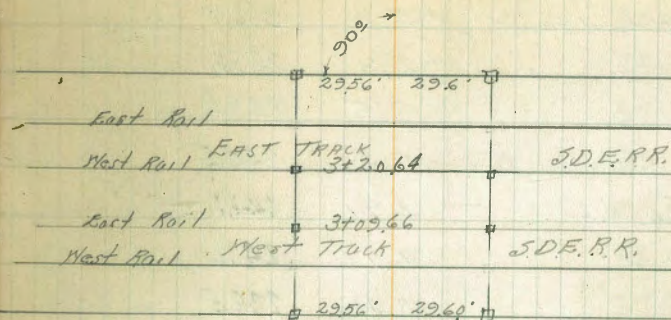 90°
29.56' 29.6'
East Rail
EAST TRACK
West Rail 3+20.64 S.D.E.R.R.
East Rail 3+09.66
West Rail West Track S.D.E.R.R.
29.56' 29.60'